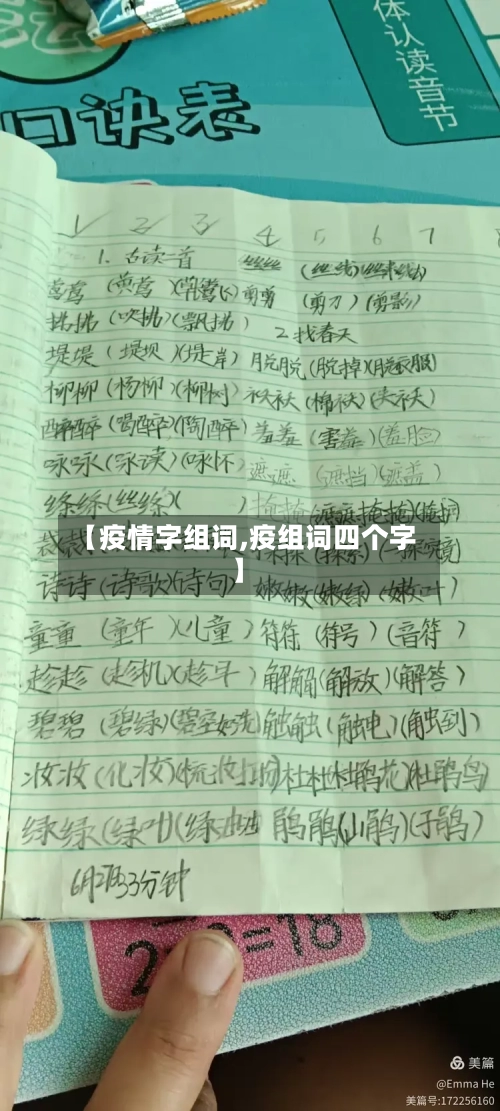 体认读音节
口诀表
1 2 3 4 5 6 7
1. 古诗二首 丝丝 (丝线)
莺莺 (黄莺) 剪剪 (剪刀) (剪影)
拂拂 (吹拂) (飘拂) 2 找春天
堤堤 (堤坝) (堤岸) 脱脱 (脱掉) (脱衣服)
柳柳 (杨柳) (柳树) 袄袄 (棉袄) (夹袄)
醉醉 (喝醉) (陶醉) 羞羞 (害羞) (羞脸)
咏咏 (咏读) (咏怀) 遮遮 (遮挡) (遮盖)
绦绦 (丝绦) ( ) 掩掩
裁裁
【疫情字组词,疫组词四个字
】
诗诗 (诗歌) (诗句) 嫩嫩 (嫩绿) (嫩叶)
童童 (童年) (儿童) 符符 (符号) (音符)
趁趁 (趁机) (趁早) 解解 (解放) (解答)
碧碧 (碧绿) 触触 (触电) (触到)
妆妆 (化妆) (梳妆打扮) 杜杜 (杜鹃花) (杜鹃鸟)
绿绿 (绿叶) (绿油油) 鹃鹃 (山鹃) (子鹃)
33分钟
=18
美篇
@Emma He
美篇号:172256160